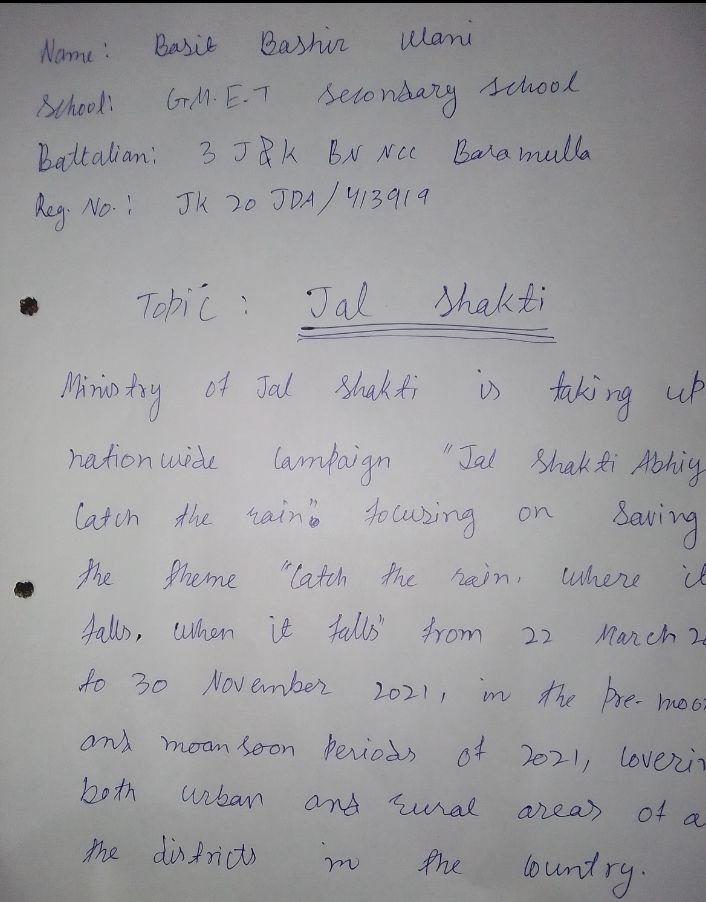 Name: Basit Bashir Wani
School: G.M.E.T Secondary School
Battalian: 3 J&K BN NCC Baramulla
Reg. No.: JK 20 JDA/413919
Topic: Jal Shakti
Ministry of Jal Shakti is taking up
nation wide Campaign "Jal Shakti Abhiy
Catch the rain". focusing on Saving
the theme "Catch the rain, where it
falls, when it falls" from 22 March 2
to 30 November 2021, in the pre-moo
and moansoon periods of 2021, Coverin
both urban and rural areas of a
the districts in the Country.